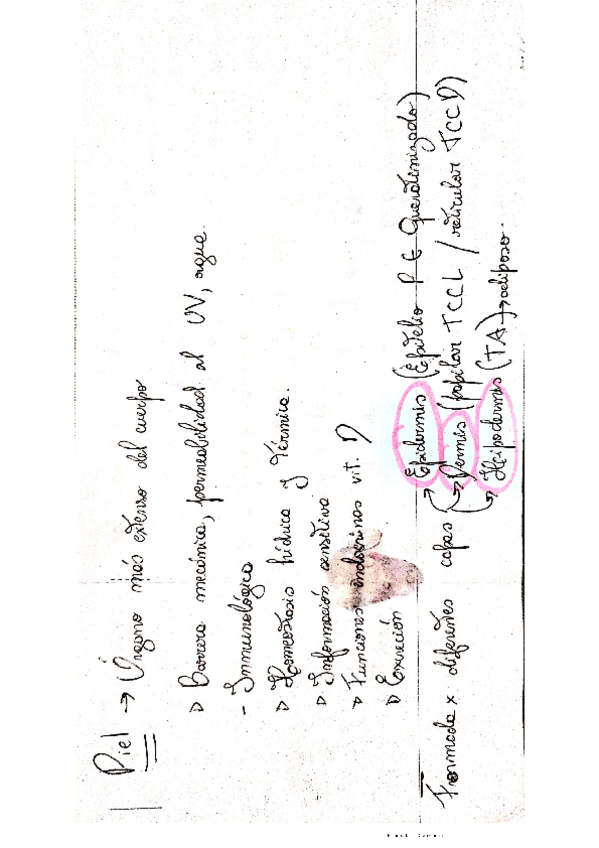 Piel → Órgano más extenso del cuerpo
▷ Barrera mecánica, permeabilidad al UV, agua.
- Inmunológico
▷ Homeostasis hídrica y Térmica.
▷ Información sensitiva
▷ Funciones endocrinas vit. D
▷ Excreción
Formada x diferentes capas → Epidermis (Epitelio P E Queratinizado)
→ Dermis (papilar TCCL / reticular TCCD)
→ Hipodermis (TA) → adiposo.